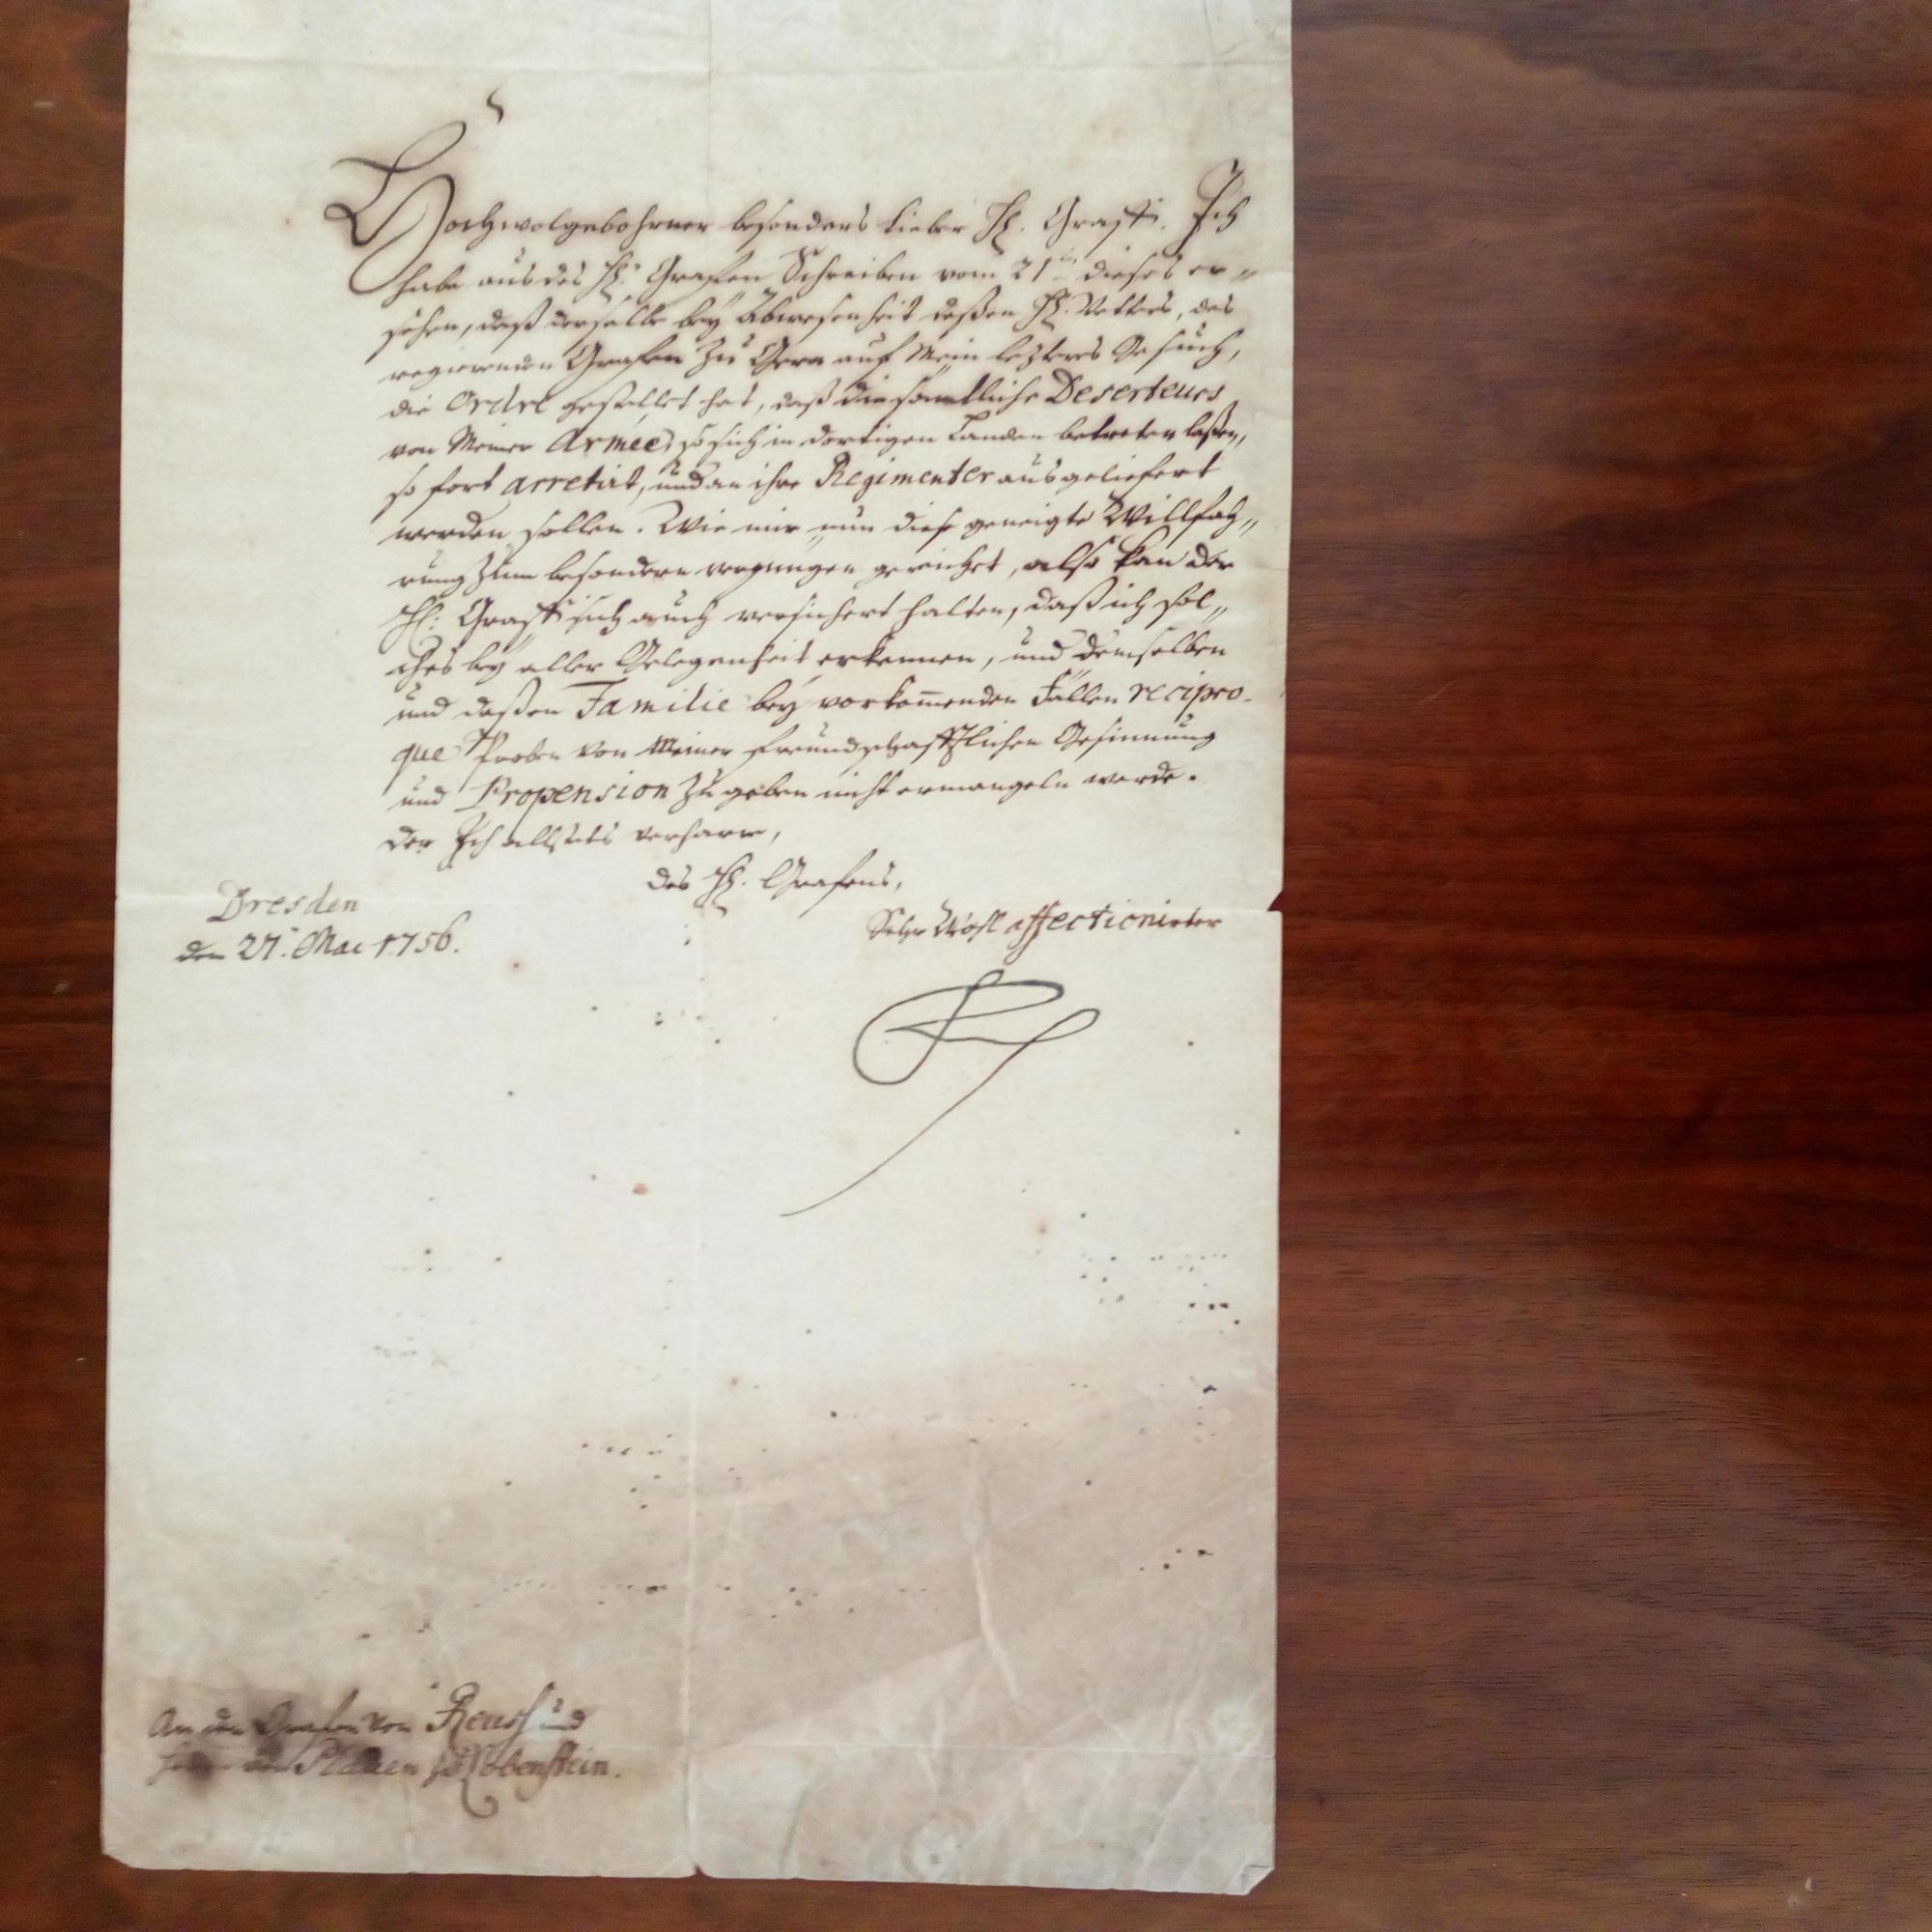 Hochwolgebohrner besonders lieber H. Graff. Ich
habe aus des H. Grafen Schreiben vom 21ten dieses er„
sehen, daß derselbe bey Abwesenheit deßen H. Vetters, des
regierenden Grafen zu Gera auf Mein letzteres Gesuch,
die Ordre gestellet hat, daß die sämtliche Deserteurs
von Meiner Armée, so sich in dortigen Landen betreten laßen,
so fort arretirt, und an ihre Regimenter ausgeliefert
werden sollen. Wie mir nun diese geneigte Willfah„
rung zum besondern vergnügen gereichet, also kan der
H: Graff sich auch versichert halten, daß ich sol„
ches bey aller Gelegenheit erkennen, und demselben
und deßen Familie bey vorkom̅enden Fällen recipro-
que Proben von Meiner freundschafftlichen Gesinnung
und Propension zu geben nicht ermangeln werde.
Der Ich allstets verharre,
des H. Grafens,
Dresden
den 27. Mai 1756.
Sehr Wohl affectionirter
An den Grafen von Reuss und
Herrn von Plauen zu Lobenstein.